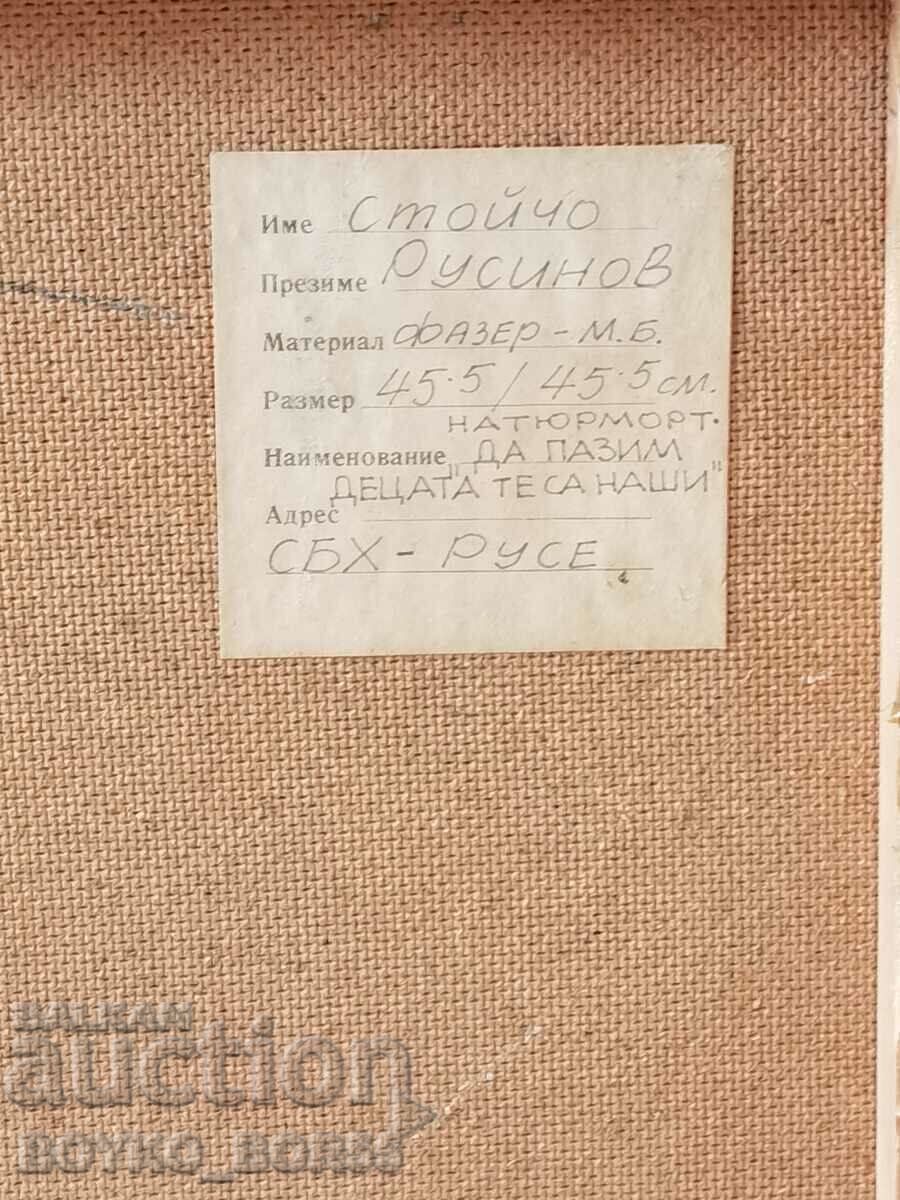 Име Стойчо
Презиме Русинов
Материал ФАЗЕР - М.Б.
Размер 45.5 / 45.5 см.
НАТЮРМОРТ.
Наименование „ДА ПАЗИМ
ДЕЦАТА ТЕ СА НАШИ"
Адрес
СБХ - РУСЕ
BALKAN
auction
BOYKO_BORSS